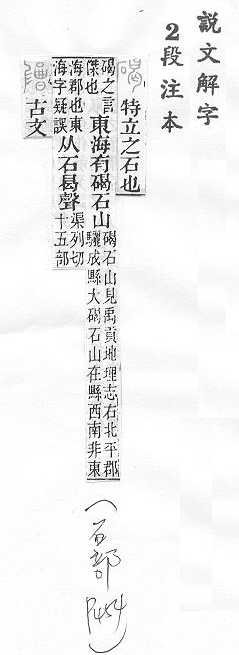 説文解字
2段注本
碣 特立之石也
碣之言
傑也
東海有碣石山
碣石山見禹貢地理志右北平郡
驪成縣大碣石山在縣西南非東
海郡也東
海字疑誤
从石曷聲
渠列切
十五部
古文
(石部 P454)